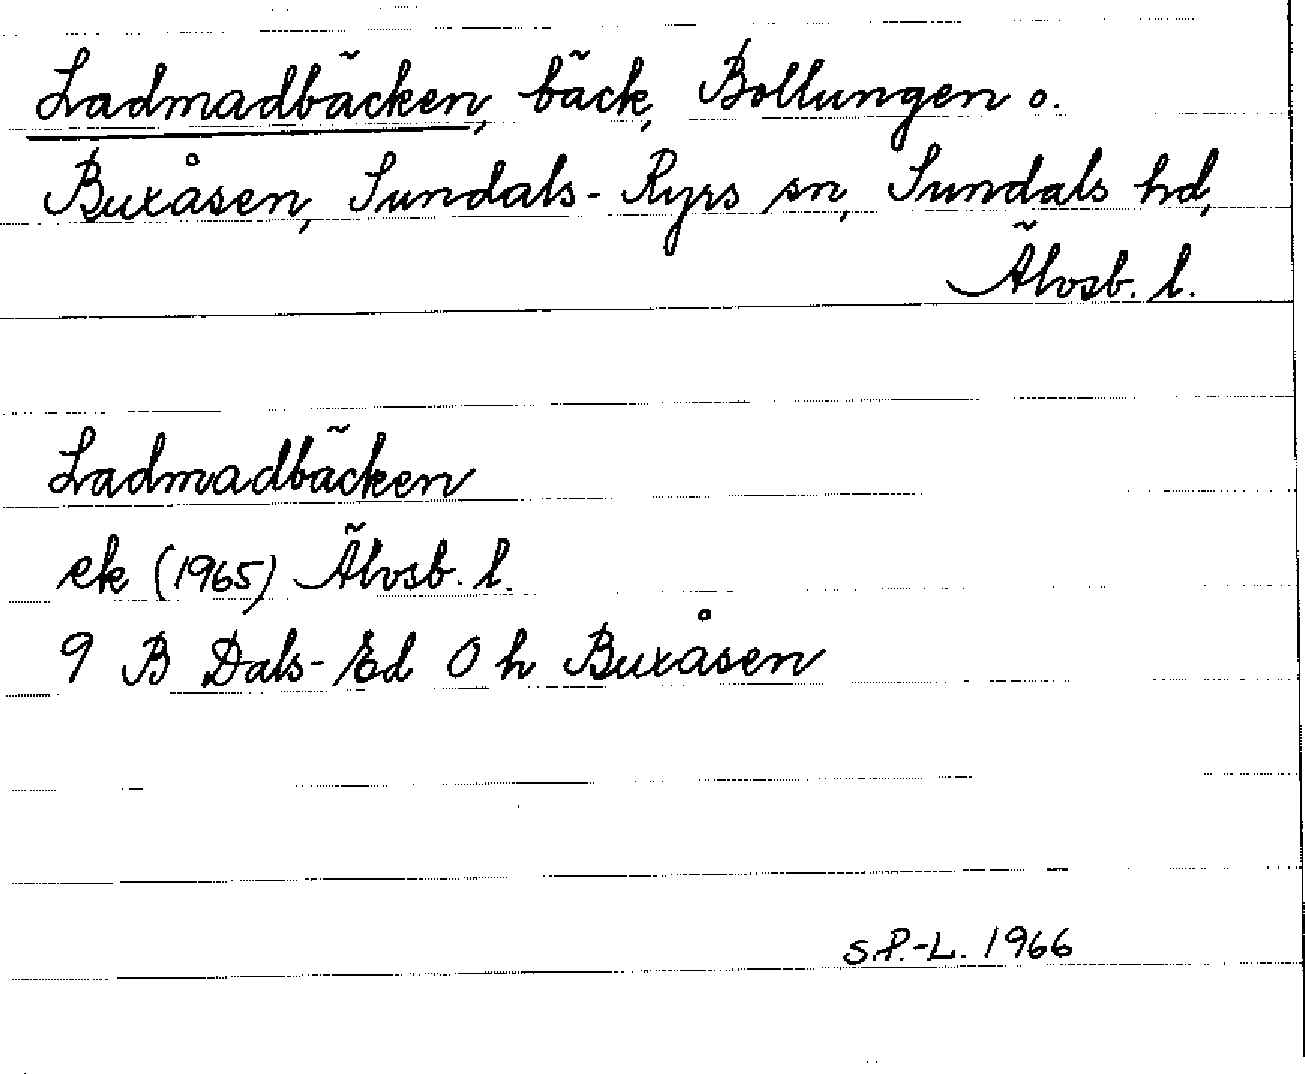 Ladmadbäcken, bäck, Bollungen o.
Buxåsen, Sundals-Ryrs sn, Sundals hd,
Älvsb. l.
Ladmadbäcken
ek (1965) Älvsb. l.
9 B Dals-Ed 0 h Buxåsen
S.P.-L. 1966